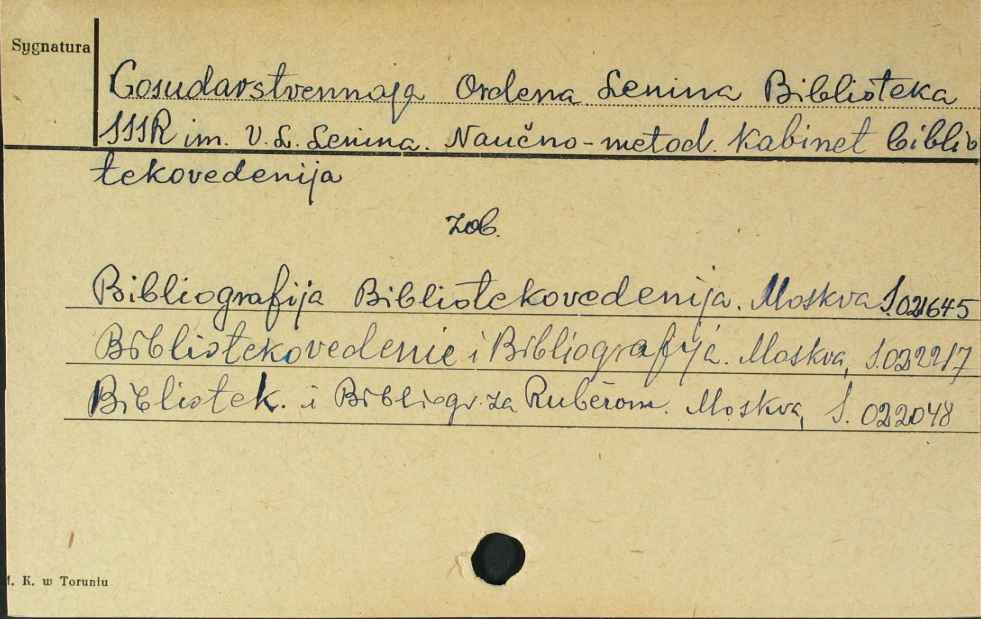 Sygnatura
Gosudarstvennaja Ordena Lenina Biblioteka
SSSR im. V. L. Lenina. Naučno-metod. Kabinet biblio
tekovedenija
zob.
Bibliografija Bibliotekovedenija. Moskva S.021645
Bibliotekovedenie i Bibliografija. Moskva, S.022217
Bibliotek. i Bibliogr. za Rubežom. Moskva, S. 022048
M. K. w Toruniu